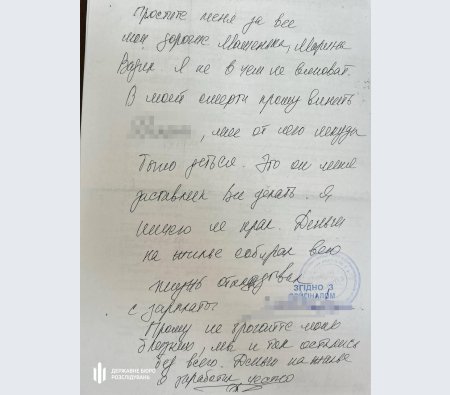 Простите меня за все
мои дорогие Машенька, Марина
Вадик Я не в чем не виноват.
В моей смерти прошу винить
, мне от него некуда
было деться. Это он меня
заставлял все делать. Я
ничего не крал. Деньги
на жилье собирал всю
жизнь откладывал
с зарплаты
ЗГІДНО З
ОРИГІНАЛОМ
Прошу не трогайте моих
близких, мы и так остались
без всего. Деньги на жилье
я заработал честно
ДЕРЖАВНЕ БЮРО
РОЗСЛІДУВАНЬ